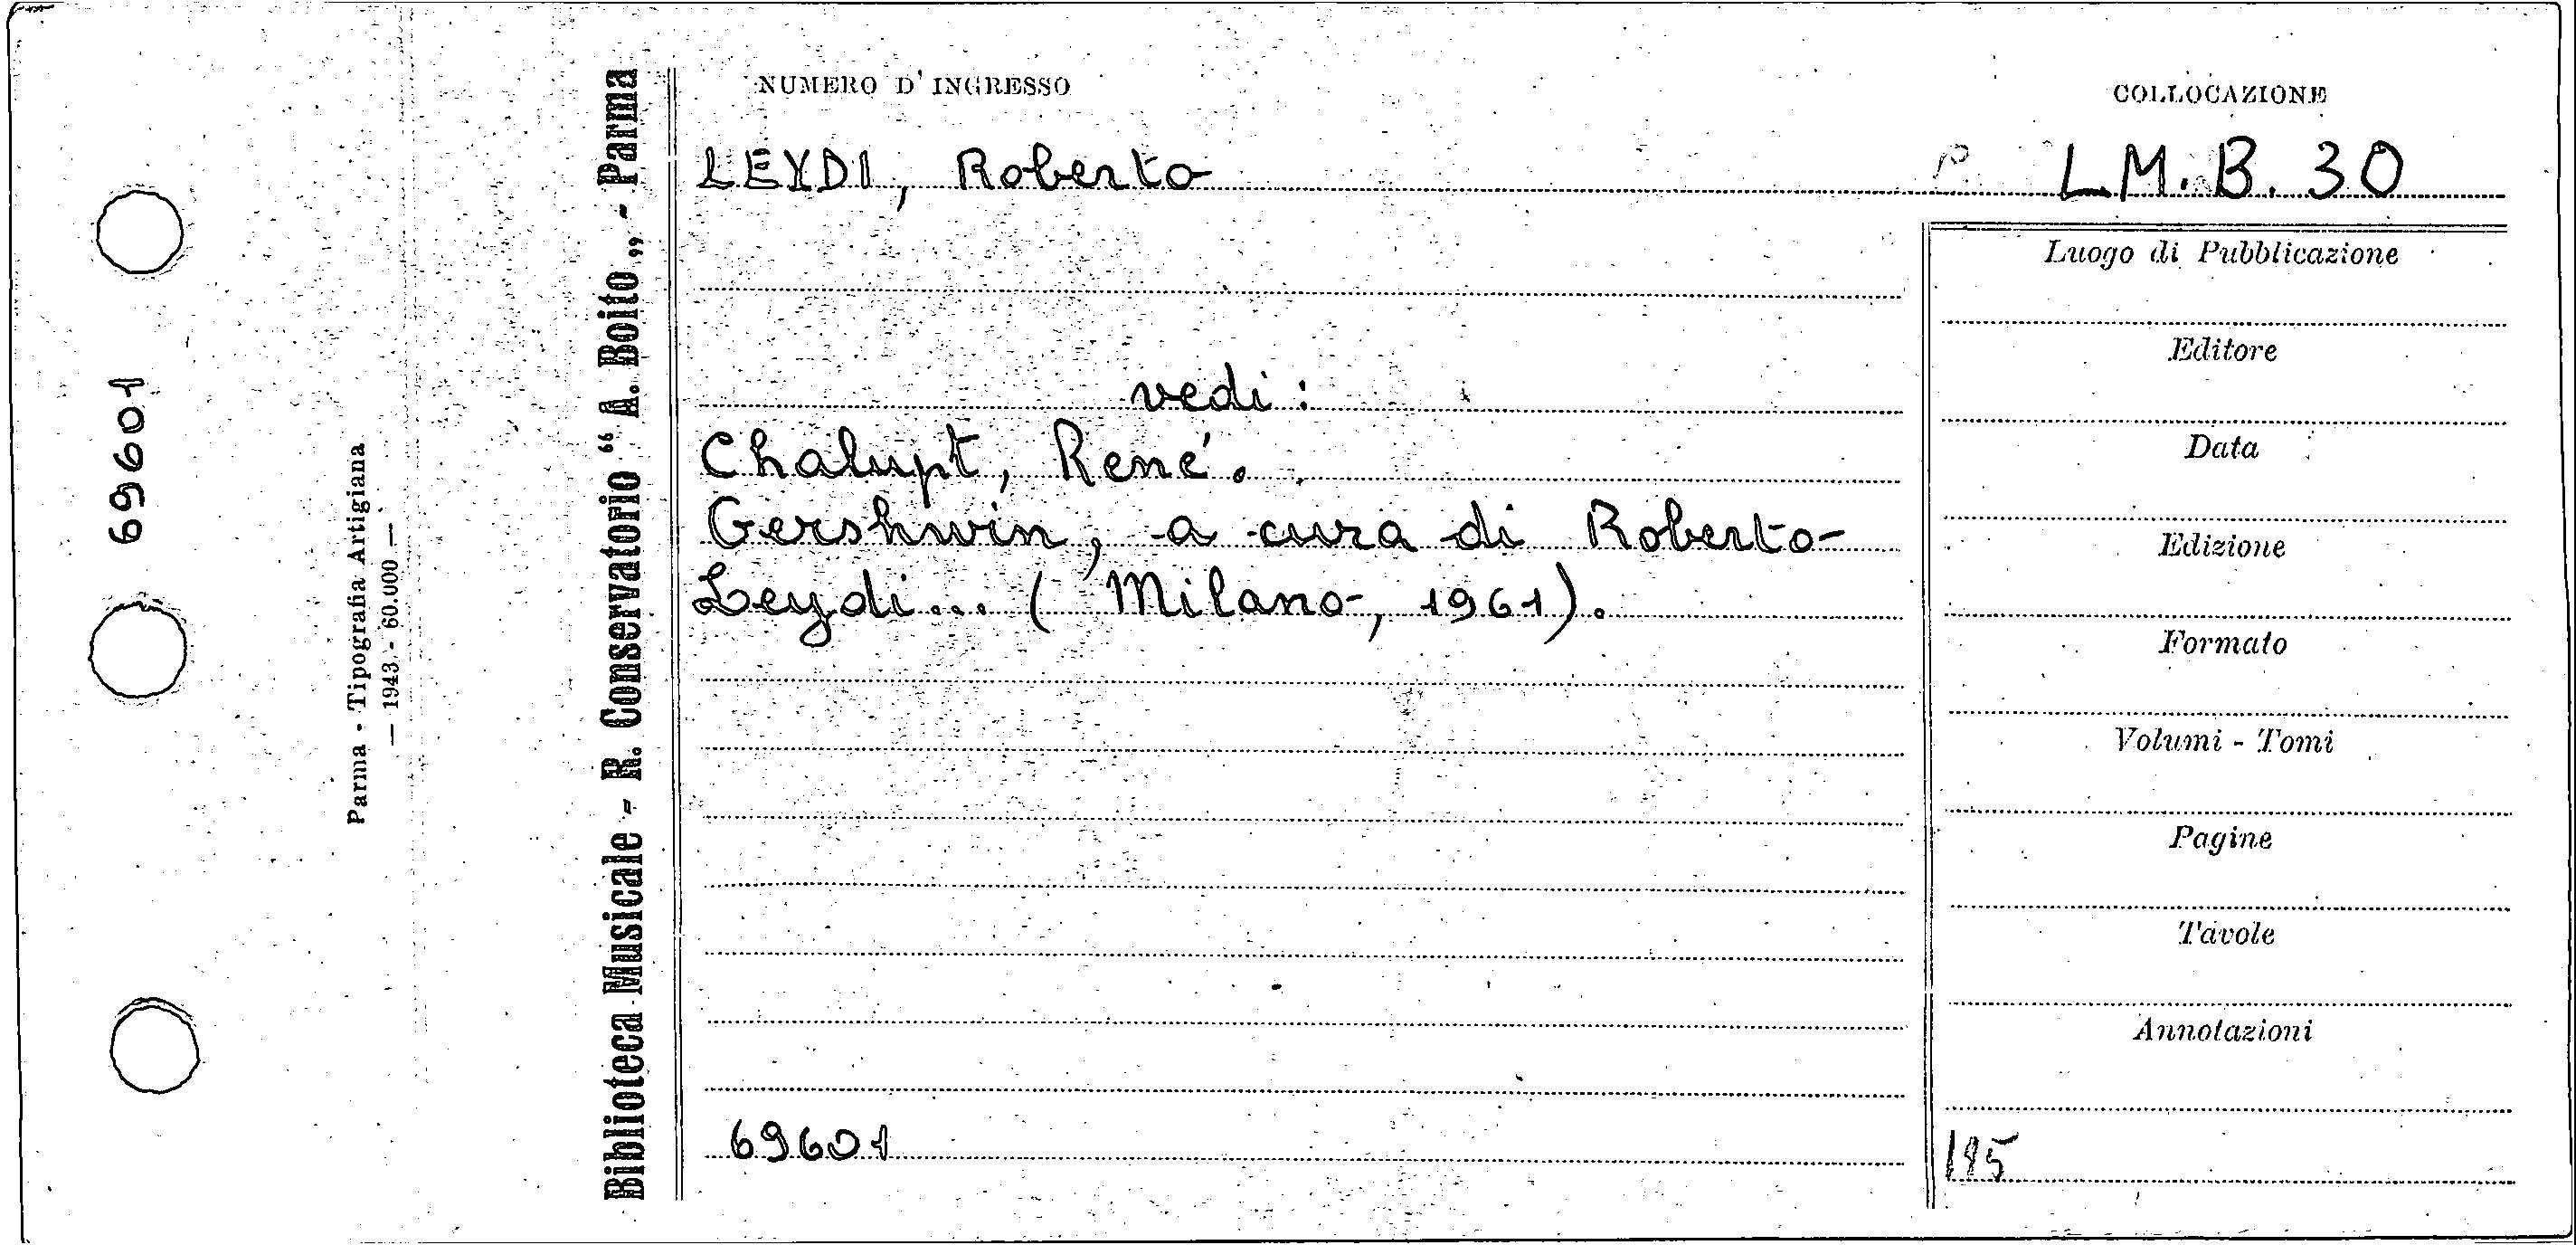 69601
Parma - Tipografia Artigiana
— 1943 - 60.000 —
Biblioteca Musicale - R. Conservatorio “ A. Boito „ - Parma
NUMERO D' INGRESSO
COLLOCAZIONE
LEYDI, Roberto
P. LM. B. 30
vedi :
Chalupt, René.
Gershwin, a cura di Roberto
Leydi... ( Milano, 1961).
69601
Luogo di Pubblicazione
Editore
Data
Edizione
Formato
Volumi - Tomi
Pagine
Tavole
Annotazioni